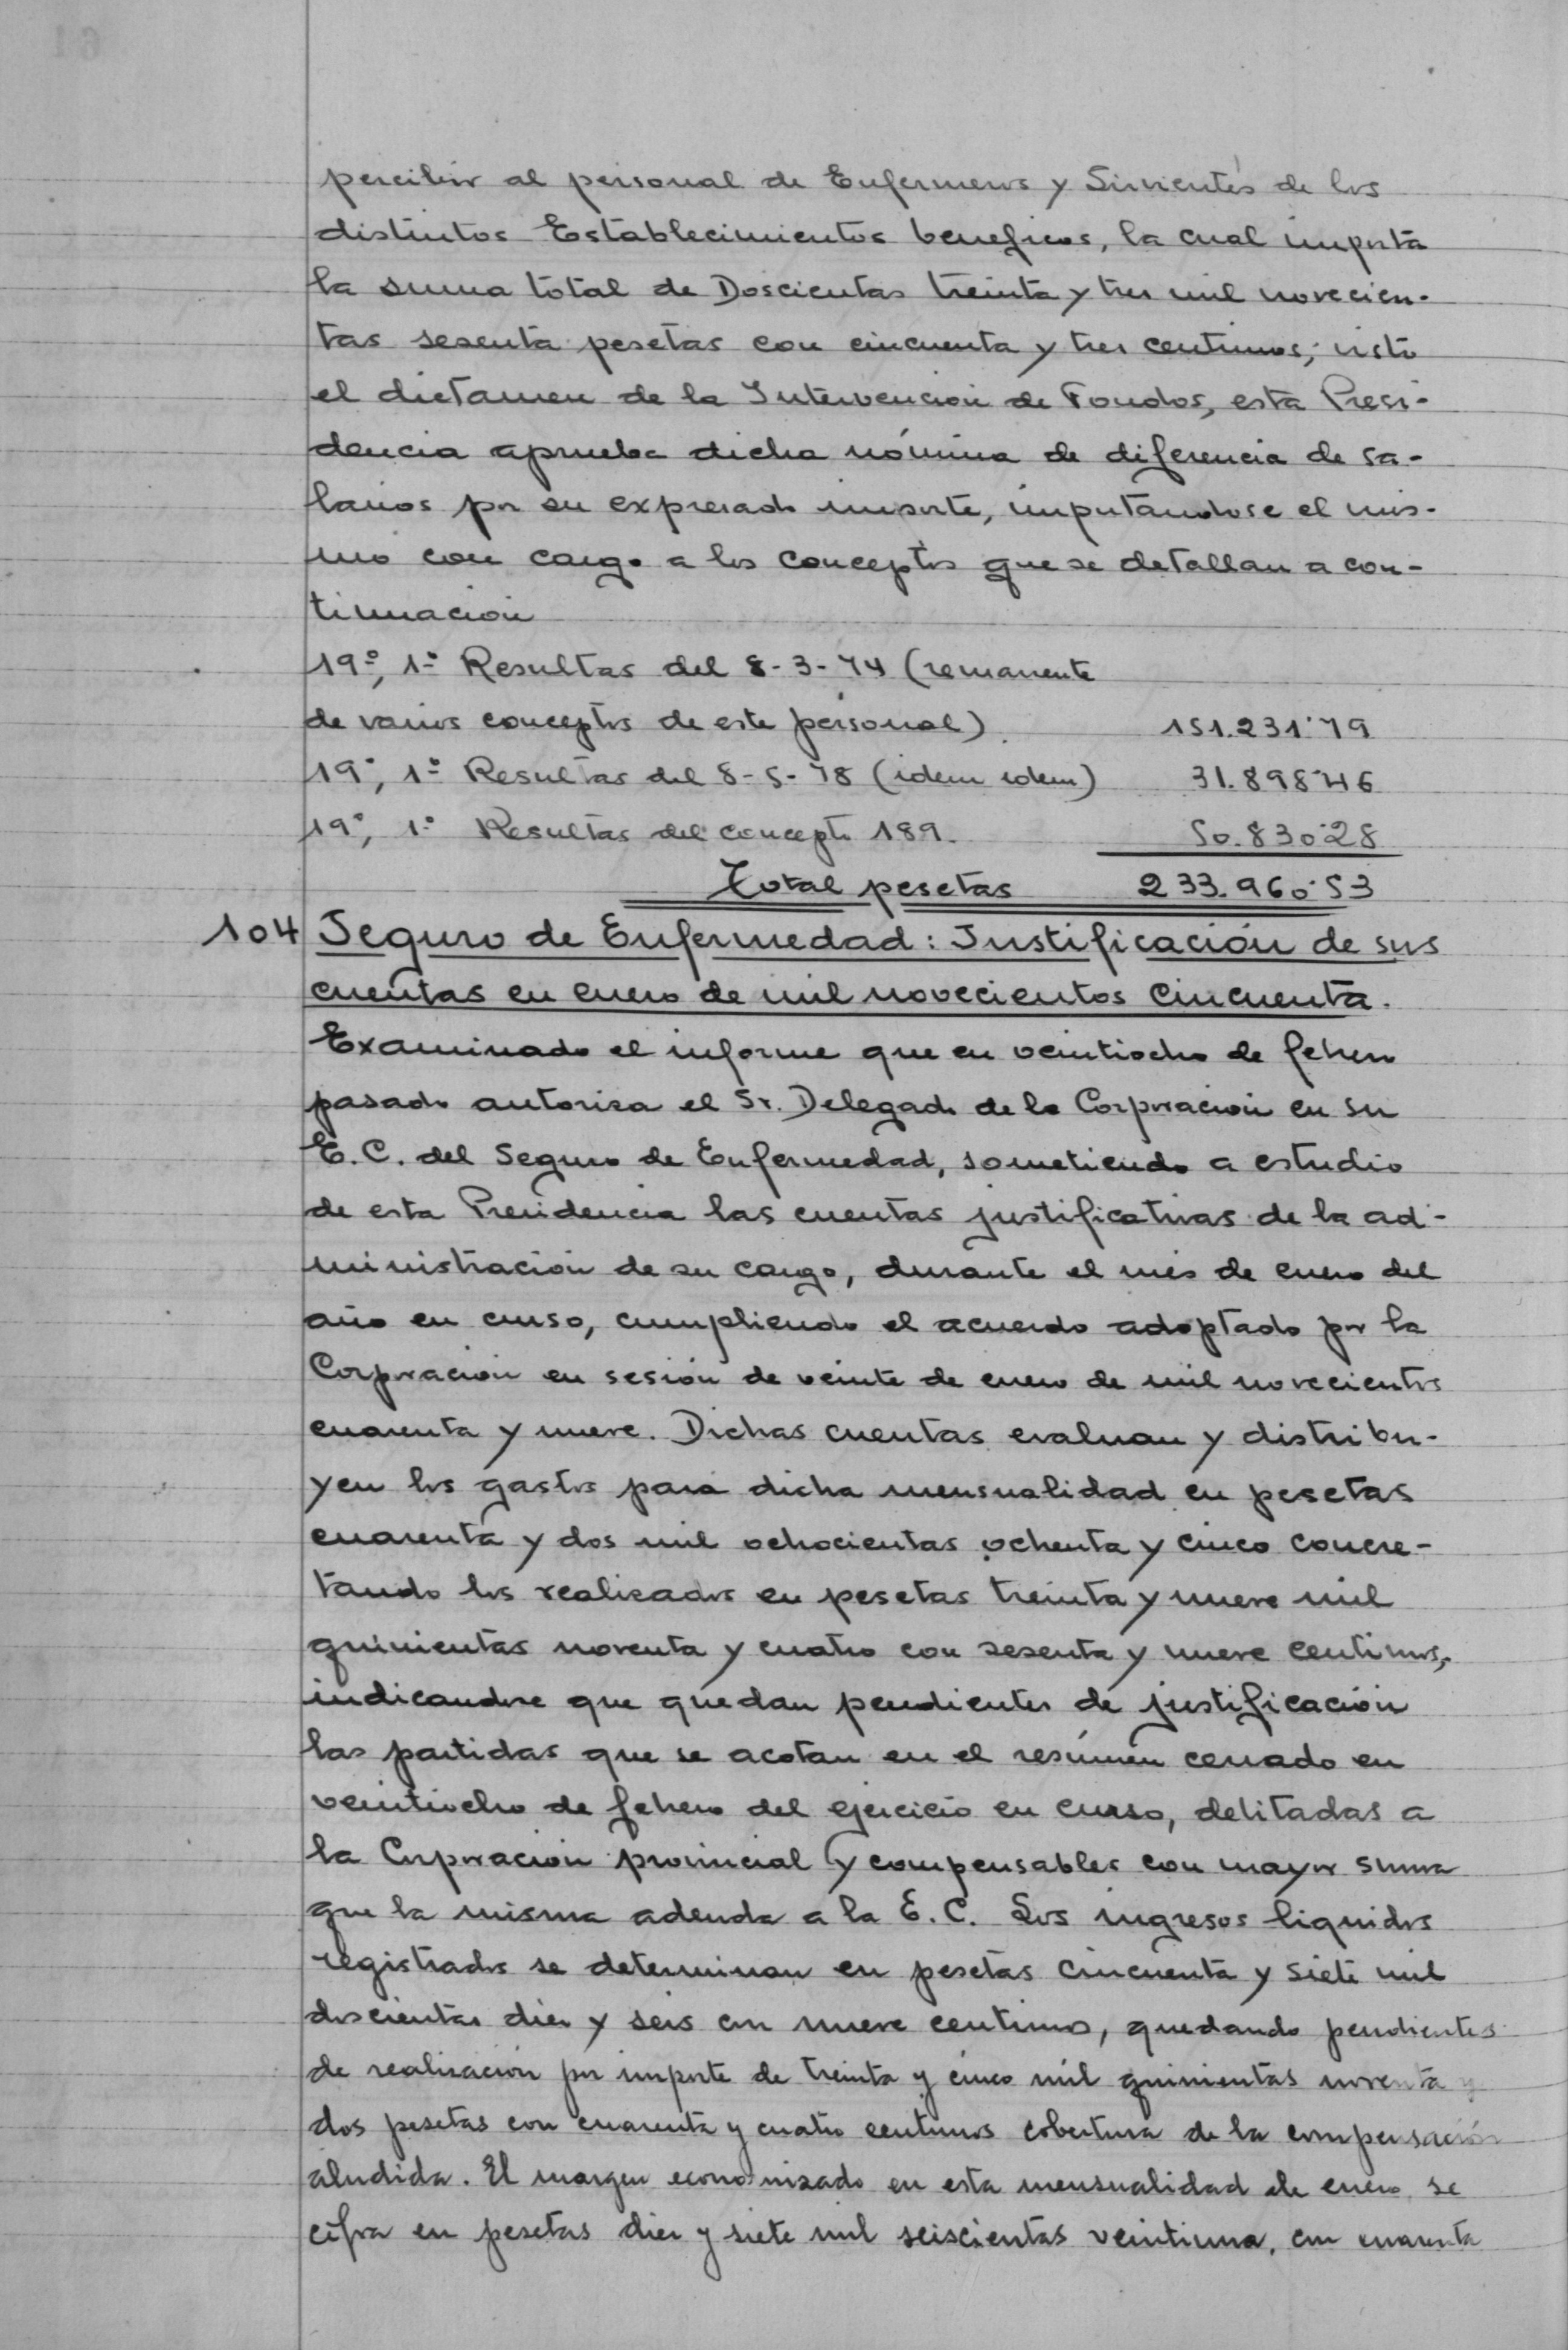 percibir al personal de Enfermeros y Sirvientes de los
distintos Establecimientos beneficos, la cual importa
la suma total de Doscientas treinta y tres mil novecien-
tas sesenta pesetas con cincuenta y tres centimos; visto
el dictamen de la Intervención de Fondos, esta Presi-
dencia aprueba dicha nómina de diferencia de sa-
larios por su expresado importe, imputandose el mis-
mo con cargo a los conceptos que se detallan a con-
tinuación
19º, 1º Resultas del 8-3-74 (remanente
de varios conceptos de este personal). 151.231'79
19º, 1º Resultas del 8-5-78 (idem idem) 31.898'46
19º, 1º Resultas del concepto 189. 50.830'28
Total pesetas 233.960'53
104 Seguro de Enfermedad: Justificación de sus
cuentas en enero de mil novecientos cincuenta.
Examinado el informe que en veintiocho de febrero
pasado autoriza el Sr. Delegado de la Corporación en su
E.C. del Seguro de Enfermedad, sometiendo a estudio
de esta Presidencia las cuentas justificativas de la ad-
ministración de su cargo, durante el mes de enero del
año en curso, cumpliendo el acuerdo adoptado por la
Corporación en sesión de veinte de enero de mil novecientos
cuarenta y nueve. Dichas cuentas evaluan y distribu-
yen los gastos para dicha mensualidad en pesetas
cuarenta y dos mil ochocientas ochenta y cinco concre-
tando los realizados en pesetas treinta y nueve mil
quinientas noventa y cuatro con sesenta y nueve centimos,
indicandose que quedan pendientes de justificación
las partidas que se acotan en el resúmen cerrado en
veintiocho de febrero del ejercicio en curso, debitadas a
la Corporación provincial y compensables con mayor suma
que la misma adeuda a la E.C. Los ingresos liquidos
registrados se determinan en pesetas cincuenta y siete mil
doscientas diez y seis con nueve centimos, quedando pendientes
de realización por importe de treinta y cinco mil quinientas noventa y
dos pesetas con cuarenta y cuatro centimos cobertura de la compensación
aludida. El margen economizado en esta mensualidad de enero se
cifra en pesetas diez y siete mil seiscientas veintiuna, con cuarenta